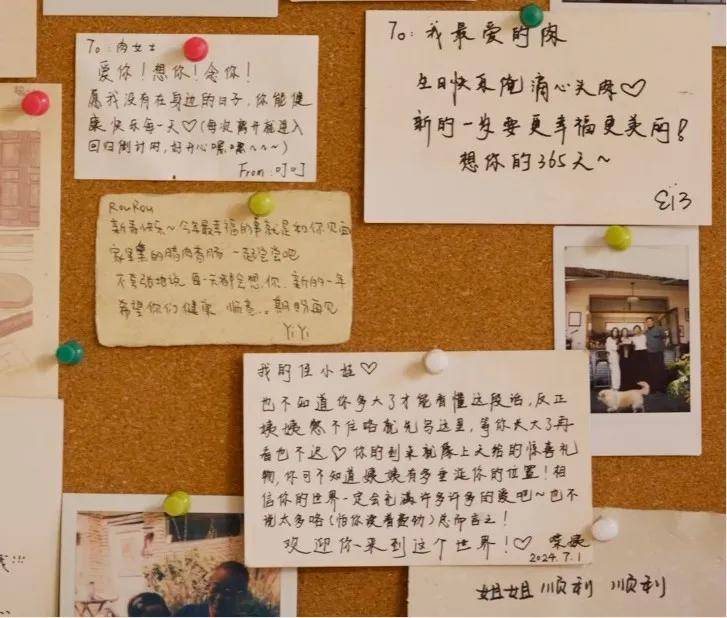 To: 肉女士
爱你！想你！念你！
愿我没有在身边的日子，你能健
康快乐每一天♡(每次离开就进入
回归倒计时，好开心嘿嘿~~~)
From: 叮叮
To: 我最爱的肉
生日快乐俺滴心头肉♡
新的一岁要更幸福更美丽！
想你的365天~
RouRou
新春快乐~今年最幸福的事就是和你见面
家里的腊肉香肠 一起尝尝吧
不夸张地说 每一天都会想你. 新的一年
希望你们健康 惬意。。期盼再见
YiYi
我的任小姐♡
也不知道你多大了才能看懂这段话，反正
姨姨憋不住咯就先写这里，等你长大了再
看也不迟♡你的到来就像上天给的惊喜礼
物，你可不知道姨姨有多垂涎你的位置！相
信你的世界一定会充满许多许多的爱吧~也不
说太多咯(怕你读着费劲)总而言之！
欢迎你来到这个世界！♡ 姨
2024.7.1
姐姐顺利 顺利